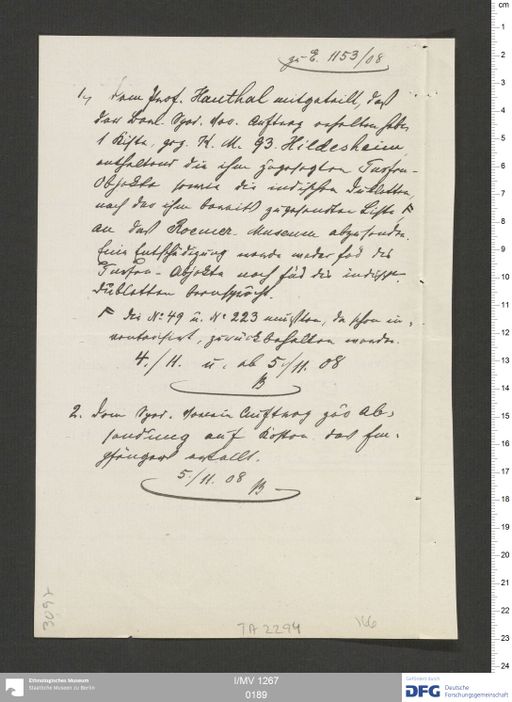 zu E. 1153/08
1., Dem Prof. Hauthal mitgeteilt, daß
der Berl. Sped. Ver. Auftrag erhalten habe,
1 Kiste, gez. K. M. 93. Hildesheim
enthaltend die ihm zugesagten Turfan-
Objekte sowie die indischen Dubletten,
nach der ihm bereits zugesandten Liste, F
an das Roemer-Museum abzusenden.
Eine Entschädigung werde weder für die
Turfan-Objekte noch für die indisch.
Dubletten beansprucht.
F die No 49 u. No 223 mußten, da schon in-
ventarisirt, zurückbehalten werden.
4./11. u. ab 5./11. 08
B
2. Dem Sped. Verein Auftrag zur Ab-
sendung auf Kosten des Em-
pfängers erteilt.
5./11. 08 B
3092
TA 2294
166
Ethnologisches Museum
Staatliche Museen zu Berlin
I/MV 1267
0189
Gefördert durch
DFG Deutsche
Forschungsgemeinschaft
cm
1
2
3
4
5
6
7
8
9
10
11
12
13
14
15
16
17
18
19
20
21
22
23
24